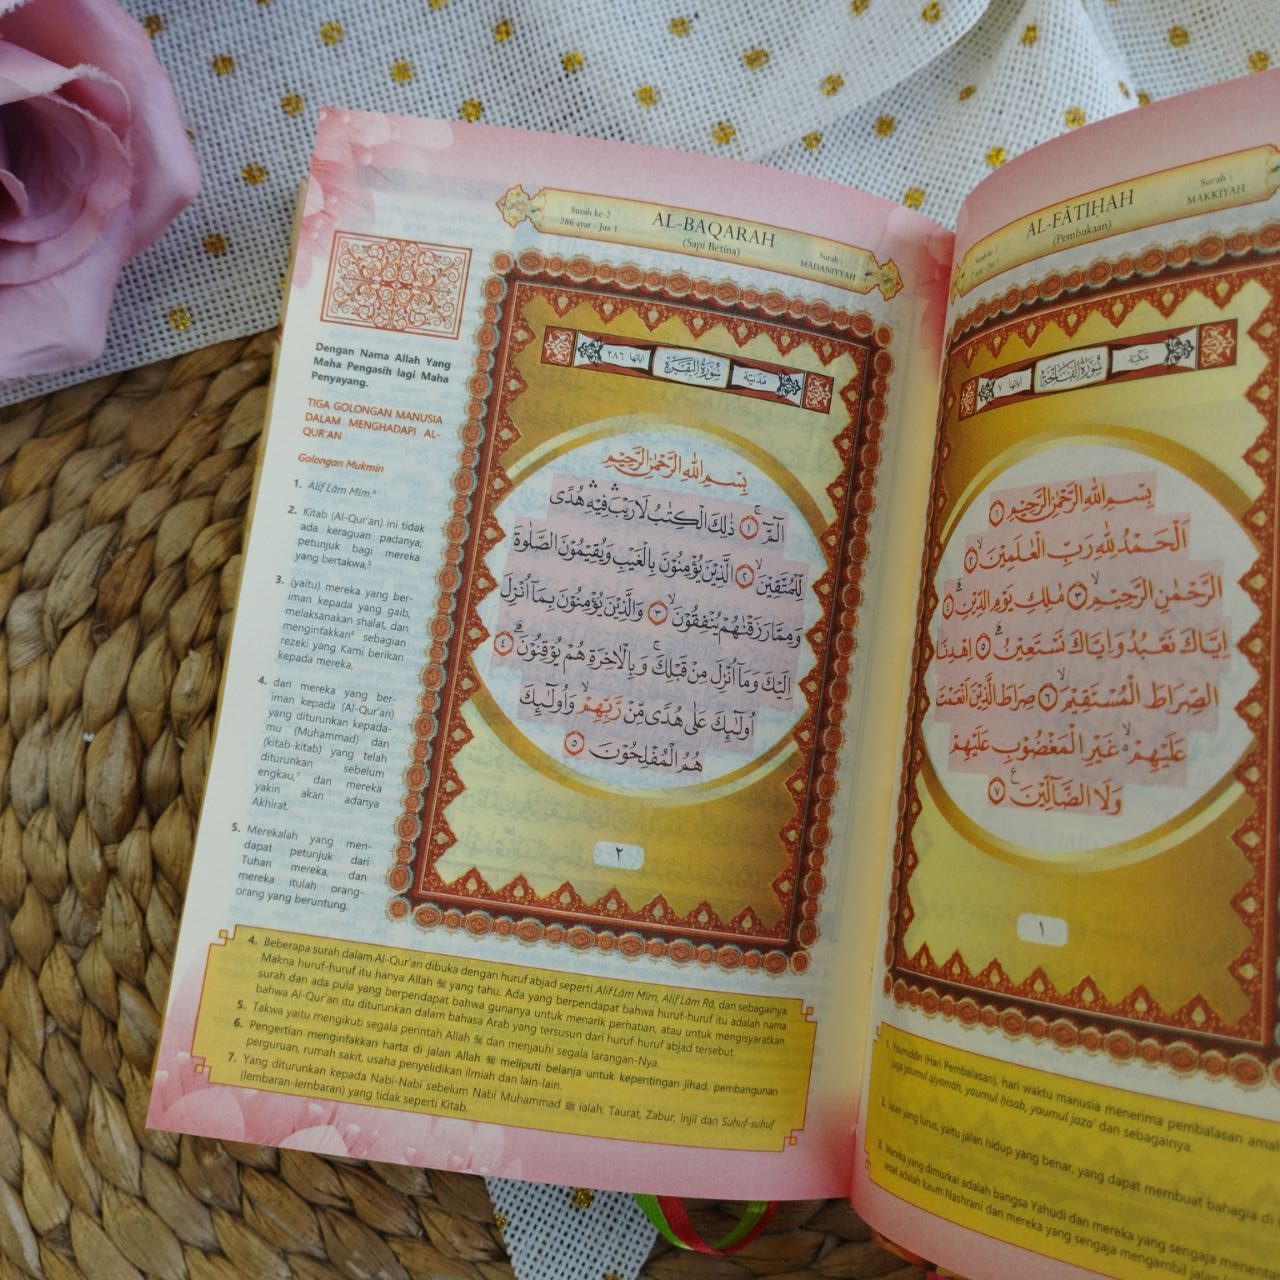 Surah ke-2
286 ayat - Juz 1
AL-BAQARAH
(Sapi Betina)
Surah :
MADANIYYAH
Dengan Nama Allah Yang
Maha Pengasih lagi Maha
Penyayang.
TIGA GOLONGAN MANUSIA
DALAM MENGHADAPI AL-
QUR'AN
Golongan Mukmin
1. Alif Lâm Mîm.⁴
2. Kitab (Al-Qur'an) ini tidak
ada keraguan padanya;
petunjuk bagi mereka
yang bertakwa,⁵
3. (yaitu) mereka yang ber-
iman kepada yang gaib,
melaksanakan shalat, dan
menginfakkan⁶ sebagian
rezeki yang Kami berikan
kepada mereka,
4. dan mereka yang ber-
iman kepada (Al-Qur'an)
yang diturunkan kepada-
mu (Muhammad) dan
(kitab-kitab) yang telah
diturunkan sebelum
engkau,⁷ dan mereka
yakin akan adanya
Akhirat.
5. Merekalah yang men-
dapat petunjuk dari
Tuhan mereka, dan
mereka itulah orang-
orang yang beruntung.
اٰياتها ٢٨٦ سُورَةُ الْبَقَرَةِ مَدَنِيَّة
بِسْمِ اللّٰهِ الرَّحْمٰنِ الرَّحِيْمِ
الۤمّۤ ۚ ١ ذٰلِكَ الْكِتٰبُ لَا رَيْبَ ۛ فِيْهِ ۛ هُدًى
لِّلْمُتَّقِيْنَ ۙ ٢ الَّذِيْنَ يُؤْمِنُوْنَ بِالْغَيْبِ وَيُقِيْمُوْنَ الصَّلٰوةَ
وَمِمَّا رَزَقْنٰهُمْ يُنْفِقُوْنَ ۙ ٣ وَالَّذِيْنَ يُؤْمِنُوْنَ بِمَآ اُنْزِلَ
اِلَيْكَ وَمَآ اُنْزِلَ مِنْ قَبْلِكَ ۚ وَبِالْاٰخِرَةِ هُمْ يُوْقِنُوْنَ ۗ ٤
اُولٰۤىِٕكَ عَلٰى هُدًى مِّنْ رَّبِّهِمْ ۙ وَاُولٰۤىِٕكَ
هُمُ الْمُفْلِحُوْنَ ٥
٢
4. Beberapa surah dalam Al-Qur'an dibuka dengan huruf abjad seperti Alif Lâm Mîm, Alif Lâm Râ, dan sebagainya.
Makna huruf-huruf itu hanya Allah ﷻ yang tahu. Ada yang berpendapat bahwa huruf-huruf itu adalah nama
surah dan ada pula yang berpendapat bahwa gunanya untuk menarik perhatian, atau untuk mengisyaratkan
bahwa Al-Qur'an itu diturunkan dalam bahasa Arab yang tersusun dari huruf-huruf abjad tersebut.
5. Takwa yaitu mengikuti segala perintah Allah ﷻ dan menjauhi segala larangan-Nya.
6. Pengertian menginfakkan harta di jalan Allah ﷻ meliputi belanja untuk kepentingan jihad, pembangunan
perguruan, rumah sakit, usaha penyelidikan ilmiah dan lain-lain.
7. Yang diturunkan kepada Nabi-Nabi sebelum Nabi Muhammad ﷺ ialah: Taurat, Zabur, Injil dan Suhuf-suhuf
(lembaran-lembaran) yang tidak seperti Kitab.
AL-FÂTIḤAH
(Pembukaan)
Surah :
MAKKIYAH
اٰياتها ٧ سُورَةُ الْفَاتِحَةِ مَكِّيَّة
بِسْمِ اللّٰهِ الرَّحْمٰنِ الرَّحِيْمِ ١
اَلْحَمْدُ لِلّٰهِ رَبِّ الْعٰلَمِيْنَ ۙ ٢
الرَّحْمٰنِ الرَّحِيْمِ ۙ ٣ مٰلِكِ يَوْمِ الدِّيْنِ ۗ ٤
اِيَّاكَ نَعْبُدُ وَاِيَّاكَ نَسْتَعِيْنُ ۗ ٥ اِهْدِنَا
الصِّرَاطَ الْمُسْتَقِيْمَ ۙ ٦ صِرَاطَ الَّذِيْنَ اَنْعَمْتَ
عَلَيْهِمْ ەۙ غَيْرِ الْمَغْضُوْبِ عَلَيْهِمْ
وَلَا الضَّاۤلِّيْنَ ࣖ ٧
١
1. Youmiddin (Hari Pembalasan), hari waktu manusia menerima pembalasan amal
juga youmul qiyomâh, youmul ḥisab, youmul jaza' dan sebagainya.
2. Jalan yang lurus, yaitu jalan hidup yang benar, yang dapat membuat bahagia di
3. Mereka yang dimurkai adalah bangsa Yahudi dan mereka yang sengaja menenta
sesat adalah kaum Nashrani dan mereka yang sengaja mengambil